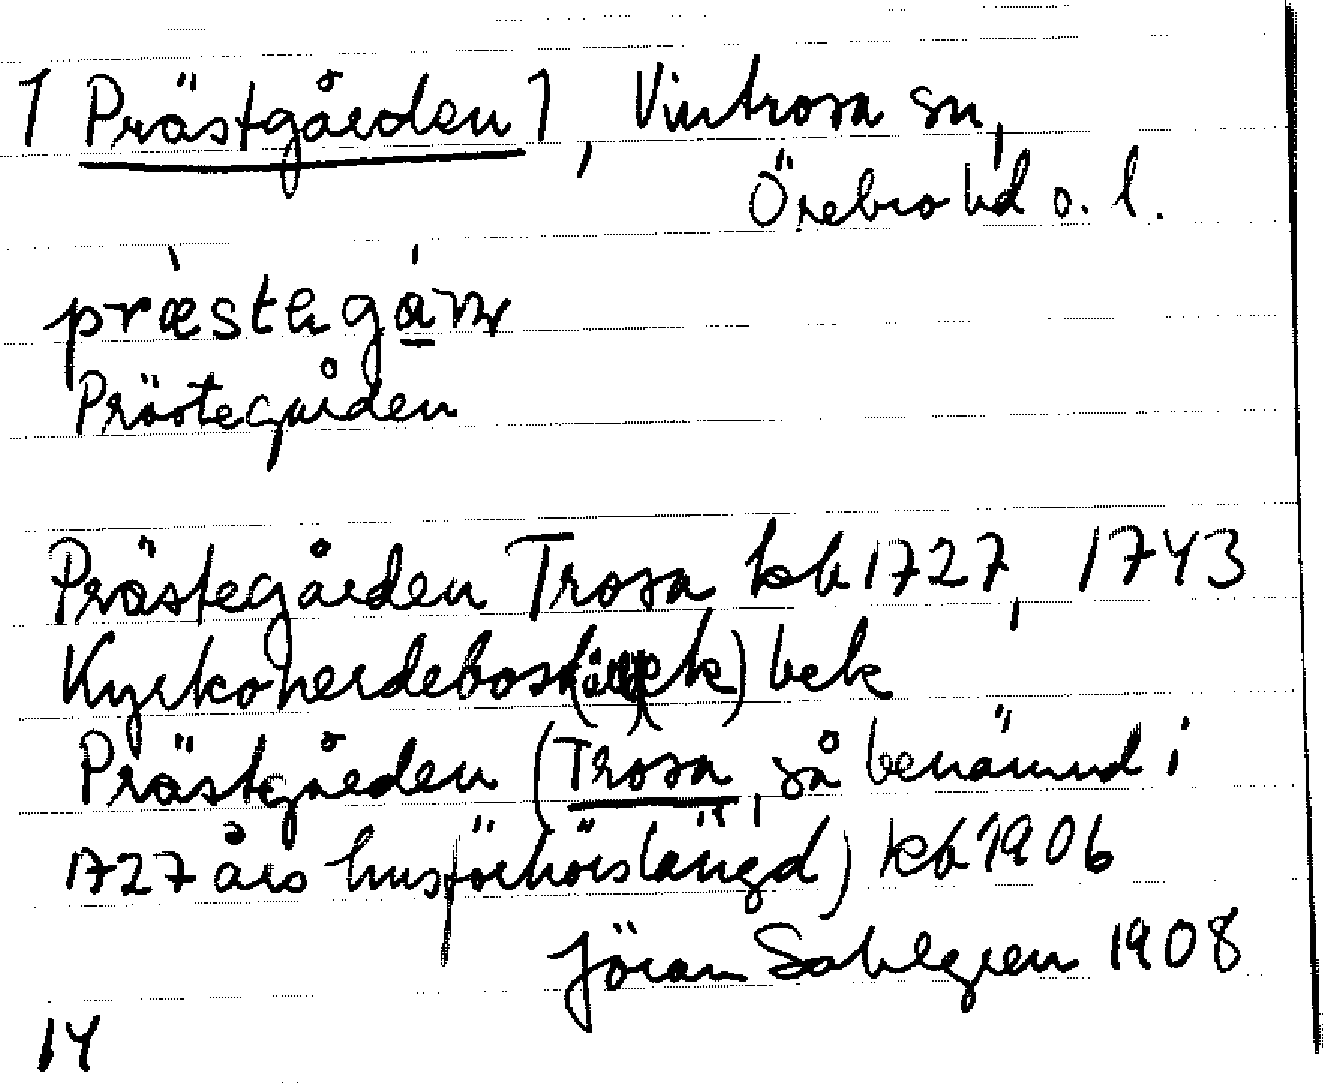 [Prästgården], Vintrosa sn,
Örebro hd o. l.
Prästegården
Prästegården Trosa kb 1727, 1743
bek
Prästgården (Trosa, så benämnd i
1727 års husförhörslängd) kb 1906
Jöran Sahlgren 1908
14